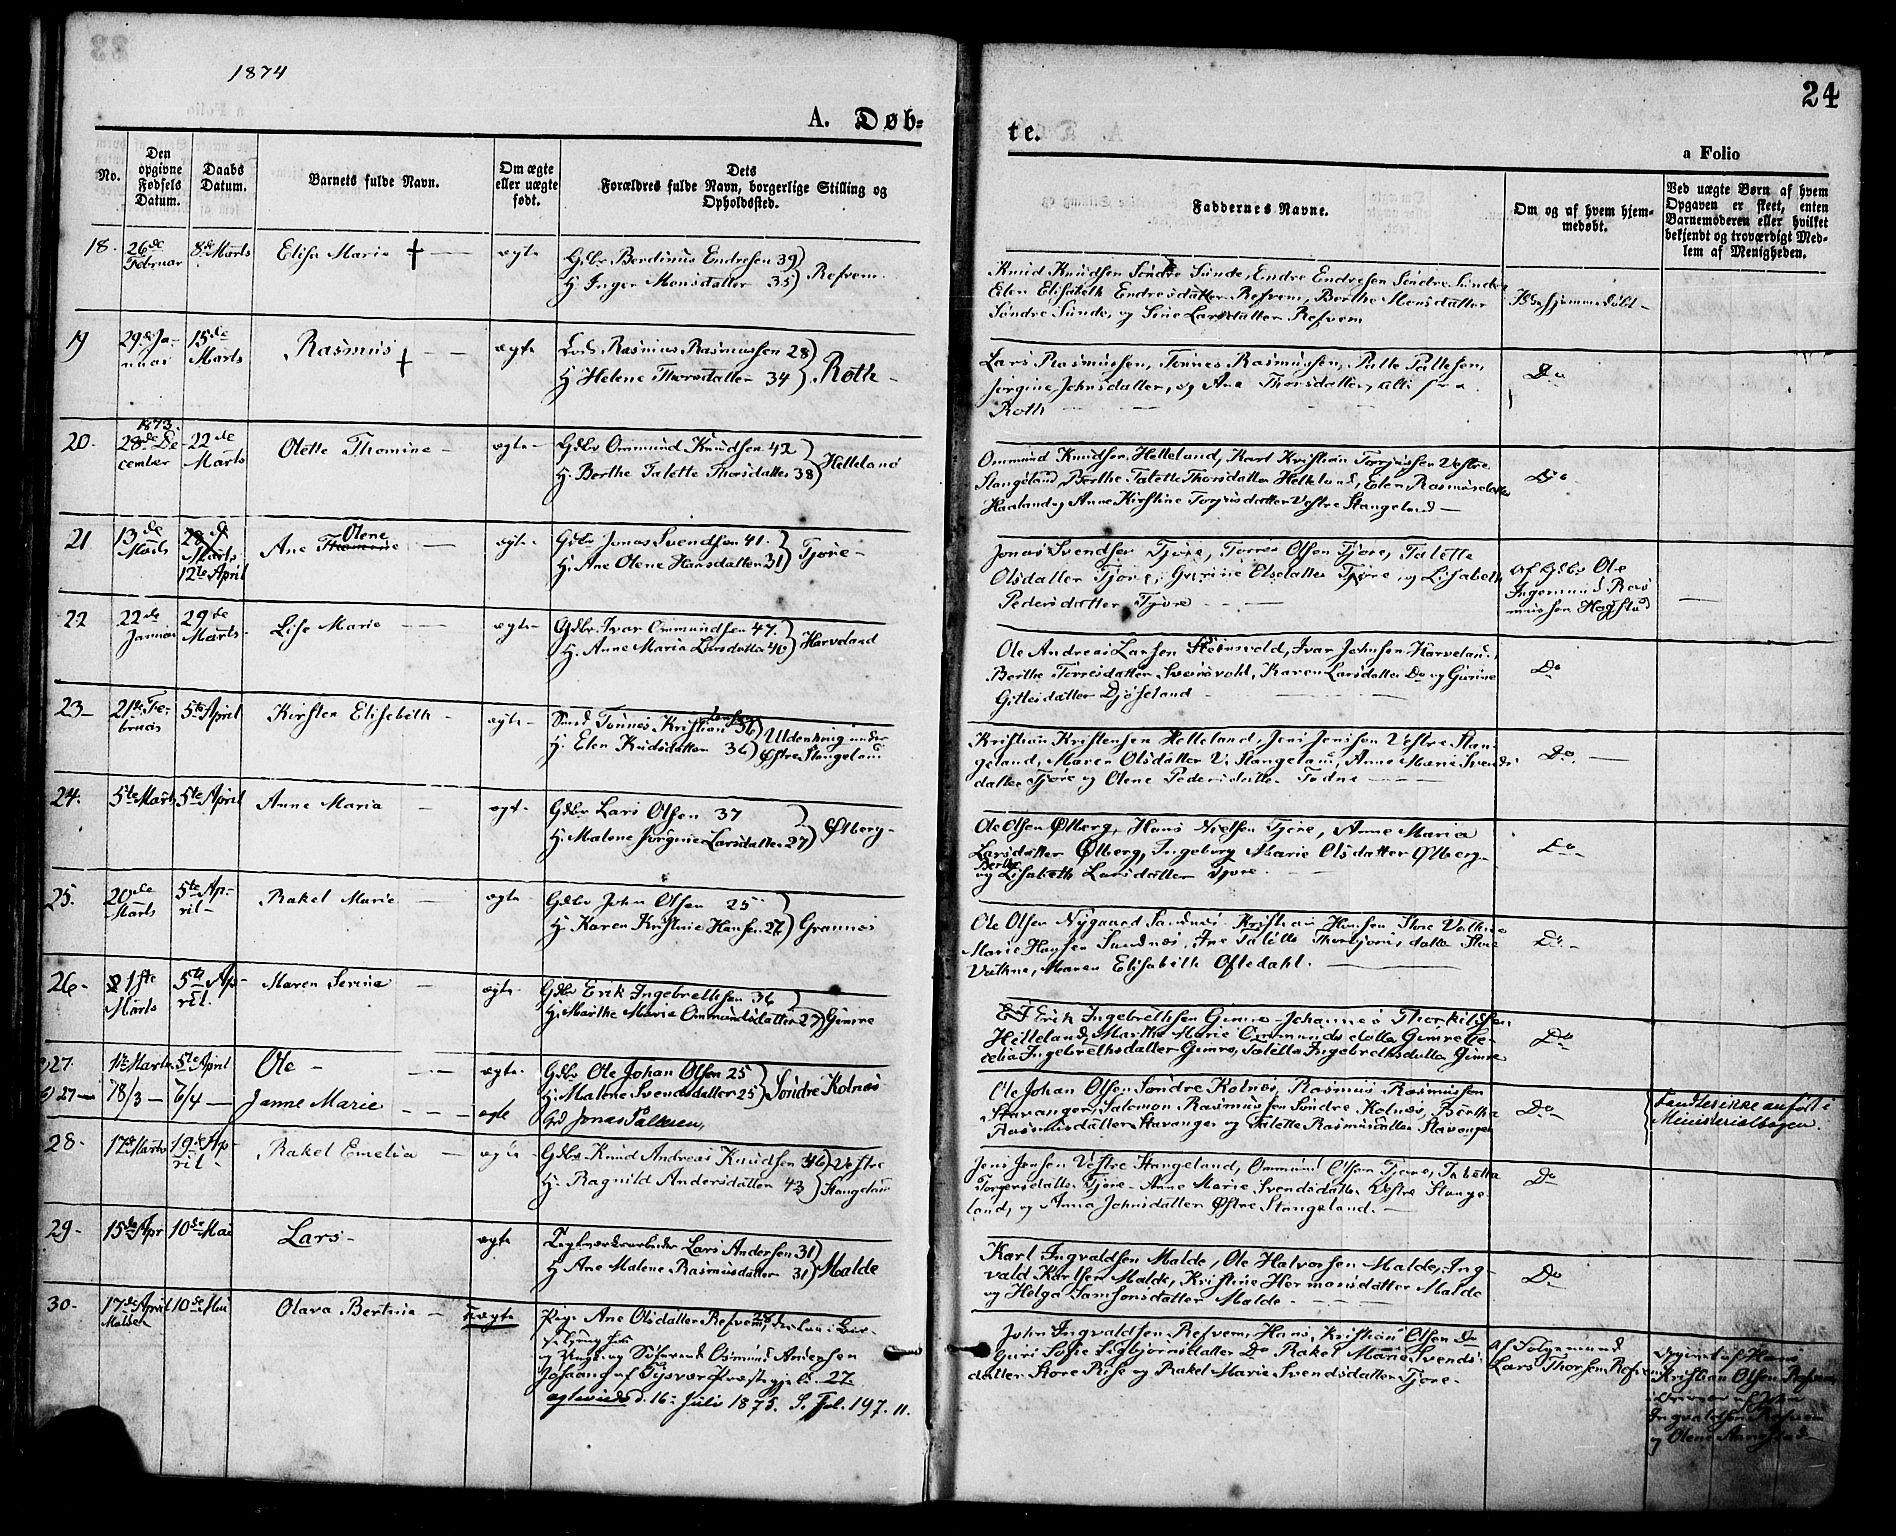 1874
24
A. Døb-
te.
a Folio
No.
Den opgivne Fødsels Datum.
Daabs Datum.
Barnets fulde Navn.
Om ægte eller uægte født.
Dets Forældres fulde Navn, borgerlige Stilling og Opholdssted.
Faddernes Navne.
Om og af hvem hjemmedøbt.
Ved uægte Børn af hvem Opgaven er skeet, enten Barnemoderen eller hvilket bekjendt og troværdigt Medlem af Menigheden.
18. 26de Februar 8de Marts Elisa Marie † ægte
Gdbr Berdinus Endresen 39
H. Inger Monsdatter 35 Refvem.
Knud Knudsen Søndre Sunde, Endre Endresen Søndre Sunde
Elen Elisabeth Endresdatter Refvem, Berthe Monsdatter
Søndre Sunde, og Sine Larsdatter Refvem
Ikke hjemmedøbt
19 29de Januar 15de Marts Rasmus † ægte
Rasmus Rasmussen 28
H. Helene Thorsdatter 34 Roth
Lars Rasmussen, Tønnes Rasmussen, Palle Pallesen,
Jørgine Johnsdatter, og Ane Thorsdatter, alle fra
Roth
Do
20. 1873. 28de December 22de Marts Olette Thomine ægte
Gdbr Ommund Knudsen 42
H. Berthe Talette Thorsdatter 38 Helleland
Ommund Knudsen Helleland, Karl Kristian Torjusen Vestre
Stangeland, Berthe Talette Thorsdatter Helleland, Elen Rasmusdatter
Haaland og Anne Kirstine Torjusdatter Vestre Stangeland
Do
21 13de Marts 28de Marts 12te April Ane Thomine Olene ægte
Gdbr Jonas Svendsen 41.
H. Ane Olene Hansdatter 31 Tjøre
Jonas Svendsen Tjøre, Torres Olsen Tjøre, Talette
Olsdatter Tjøre, Gurine Olsdatter Tjøre og Lisabeth
Pedersdatter Tjøre
Af Gdbr Ole
Ingemund Rasmussen Hogstad
22 22de Januar 29de Marts Lise Marie ægte
Gdbr. Ivar Ommundsen 47.
H. Anne Maria Larsdatter 40 Harveland
Ole Andreas Larsen Steensvold, Ivar Johnsen Harveland,
Berthe Torresdatter Svensvold, Karen Larsdatter Do og Gurine
Gittlesdatter Djøseland
Do
23 21de Februar 5te April Kirsten Elisabeth ægte
Smed. Tønnes Kristian Jensen 36
H. Elen Kndsdatter 36 Uldenkrig under Østre Stangeland
Kristian Kristensen Helleland, Jens Jensen Vestre Stangeland, Maren Olsdatter V. Stangeland, Anne Marie Svendsdatter Tjøre og Olene Pedersdatter Todne
Do
24. 5te Marts 5te April Anne Maria ægt
Gdbr Lars Olsen 37
H. Malene Jørgine Larsdatter 27 Ølberg
Ole Olsen Ølberg, Hans Nielsen Tjøre, Anne Maria
Larsdatter Ølberg, Ingeborg Marie Olsdatter Ølberg
og Berthe Lisabeth Larsdatter Tjøre.
Do
25. 20de Marts 5te April Rakel Marie ægte
Gdbr John Olsen 25
H. Karen Kristine Hansen 27 Grannes
Ole Olsen Nygaard Sandnes Kristian Hansen Store Vatne
Marie Hansen Sandnes, Ane Talette Thorbjørnsdatter Store
Vathne, Maren Elisabeth Oftedahl.
Do
26 21ste Marts 5te April Maren Serine ægte
Gdbr Erik Ingebrethsen 36
H. Marthe Marie Ommundsdatter 27 Gimre
Erik Ingebrethsen Gimre, Johannes Thorkildsen
Helleland, Marthe Marie Ommundsdatter Gimre Cecelia Ingebrethsdatter Gimre, Talette Ingebrethsdatter Gimre
Do
a) 27. 11te Marts 5te April Ole ægte
Gdbr Ole Johan Olsen 25
H. Malene Svendsdatter 25 Søndre Kolnes
b) 27 18/3 6/4 Janne Marie ægte
Gd Jonas Salesen,
Ole Johan Olsen Søndre Kolnes, Rasmus Rasmussen
Stavanger, Salomon Rasmussen Søndre Kolnes, Bertha
Rasmusdatter Stavanger og Talette Rasmusdatter Stavanger
Do
Landtes ikke anført i
Ministerialbogen.
28 17de Marts 19de April Rakel Emelia ægte
Gdbr Knud Andreas Knudsen 46
H. Ragnild Andersdatter 43 Vestre Stangeland
Jens Jensen Vestre Stangeland, Ommund Olsen Tjøre, Tabetta
Torgersdatter Tjøre, Anne Marie Svendsdatter Vestre Stangeland, og Anna Johnsdatter Østre Stangeland.
Do
29 15de Apr 10de Mai Lars ægte
Teglværksarbeider Lars Andersen 31
H Ane Malene Rasmusdatter 31 Malde
Karl Ingvaldsen Malde, Ole Halvorsen Malde, Ingvald Karlsen Malde, Kristine Hermansdatter Malde
og Helga Samsonsdatter Malde
Do
30. 17de April 10de Mai Olava Bertine uægte
Pige Ane Olsdatter Refvem 24
og Ungk. og Søfarende Osmund Andersen
Josaang af Tysvær Præstegjeld. 27.
egteviede d. 16. Juli 1875. S. Fol. 197. 11.
John Ingvaldsen Refvem, Hans Kristian Olsen Do
Guri Sofie Sigbjørnsdatter Do Rakel Marie Svendsdatter Store Risse og Rakel Marie Svendsdatter Tjøre
Af Følgemand
Lars Thorsen Refvem
opgivet af Hans
Kristian Olsen Refvem
Ingvaldsen Refvem
og Olene Aanestad